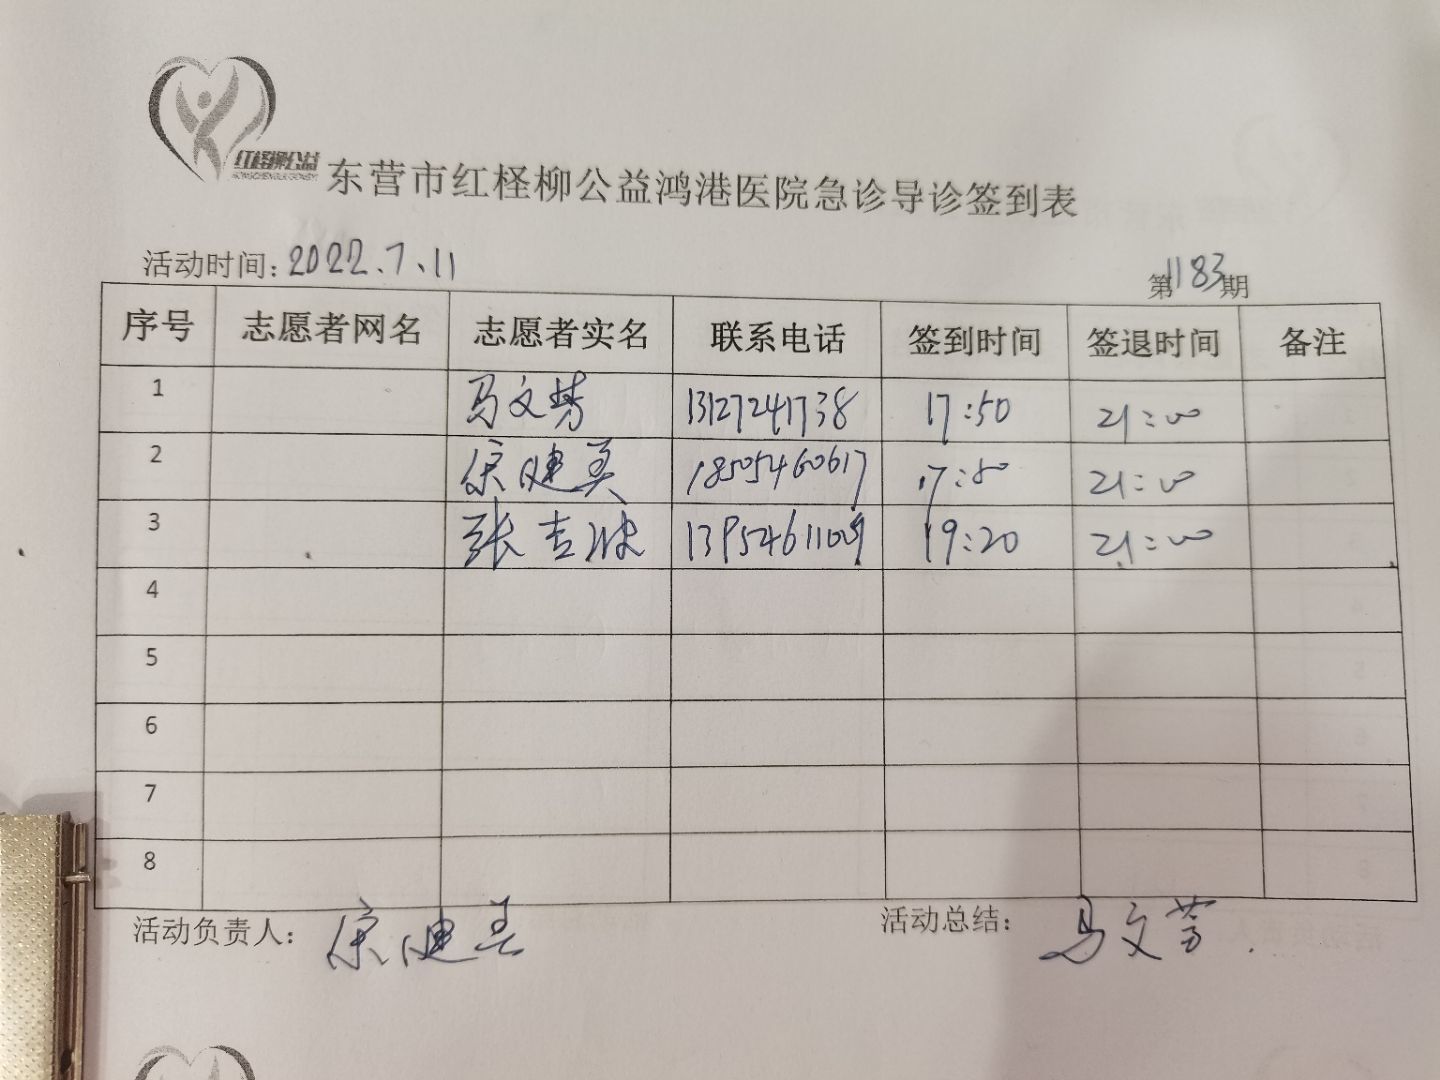 红柽柳公益
东营市红柽柳公益鸿港医院急诊导诊签到表
活动时间：2022.7.11 第1183期
序号 志愿者网名 志愿者实名 联系电话 签到时间 签退时间 备注
1 马文芳 13127241738 17:50 21:00
2 宋健美 18505460617 17:50 21:00
3 张吉波 13954611009 19:20 21:00
4
5
6
7
8
活动负责人：宋健美 活动总结：马文芳